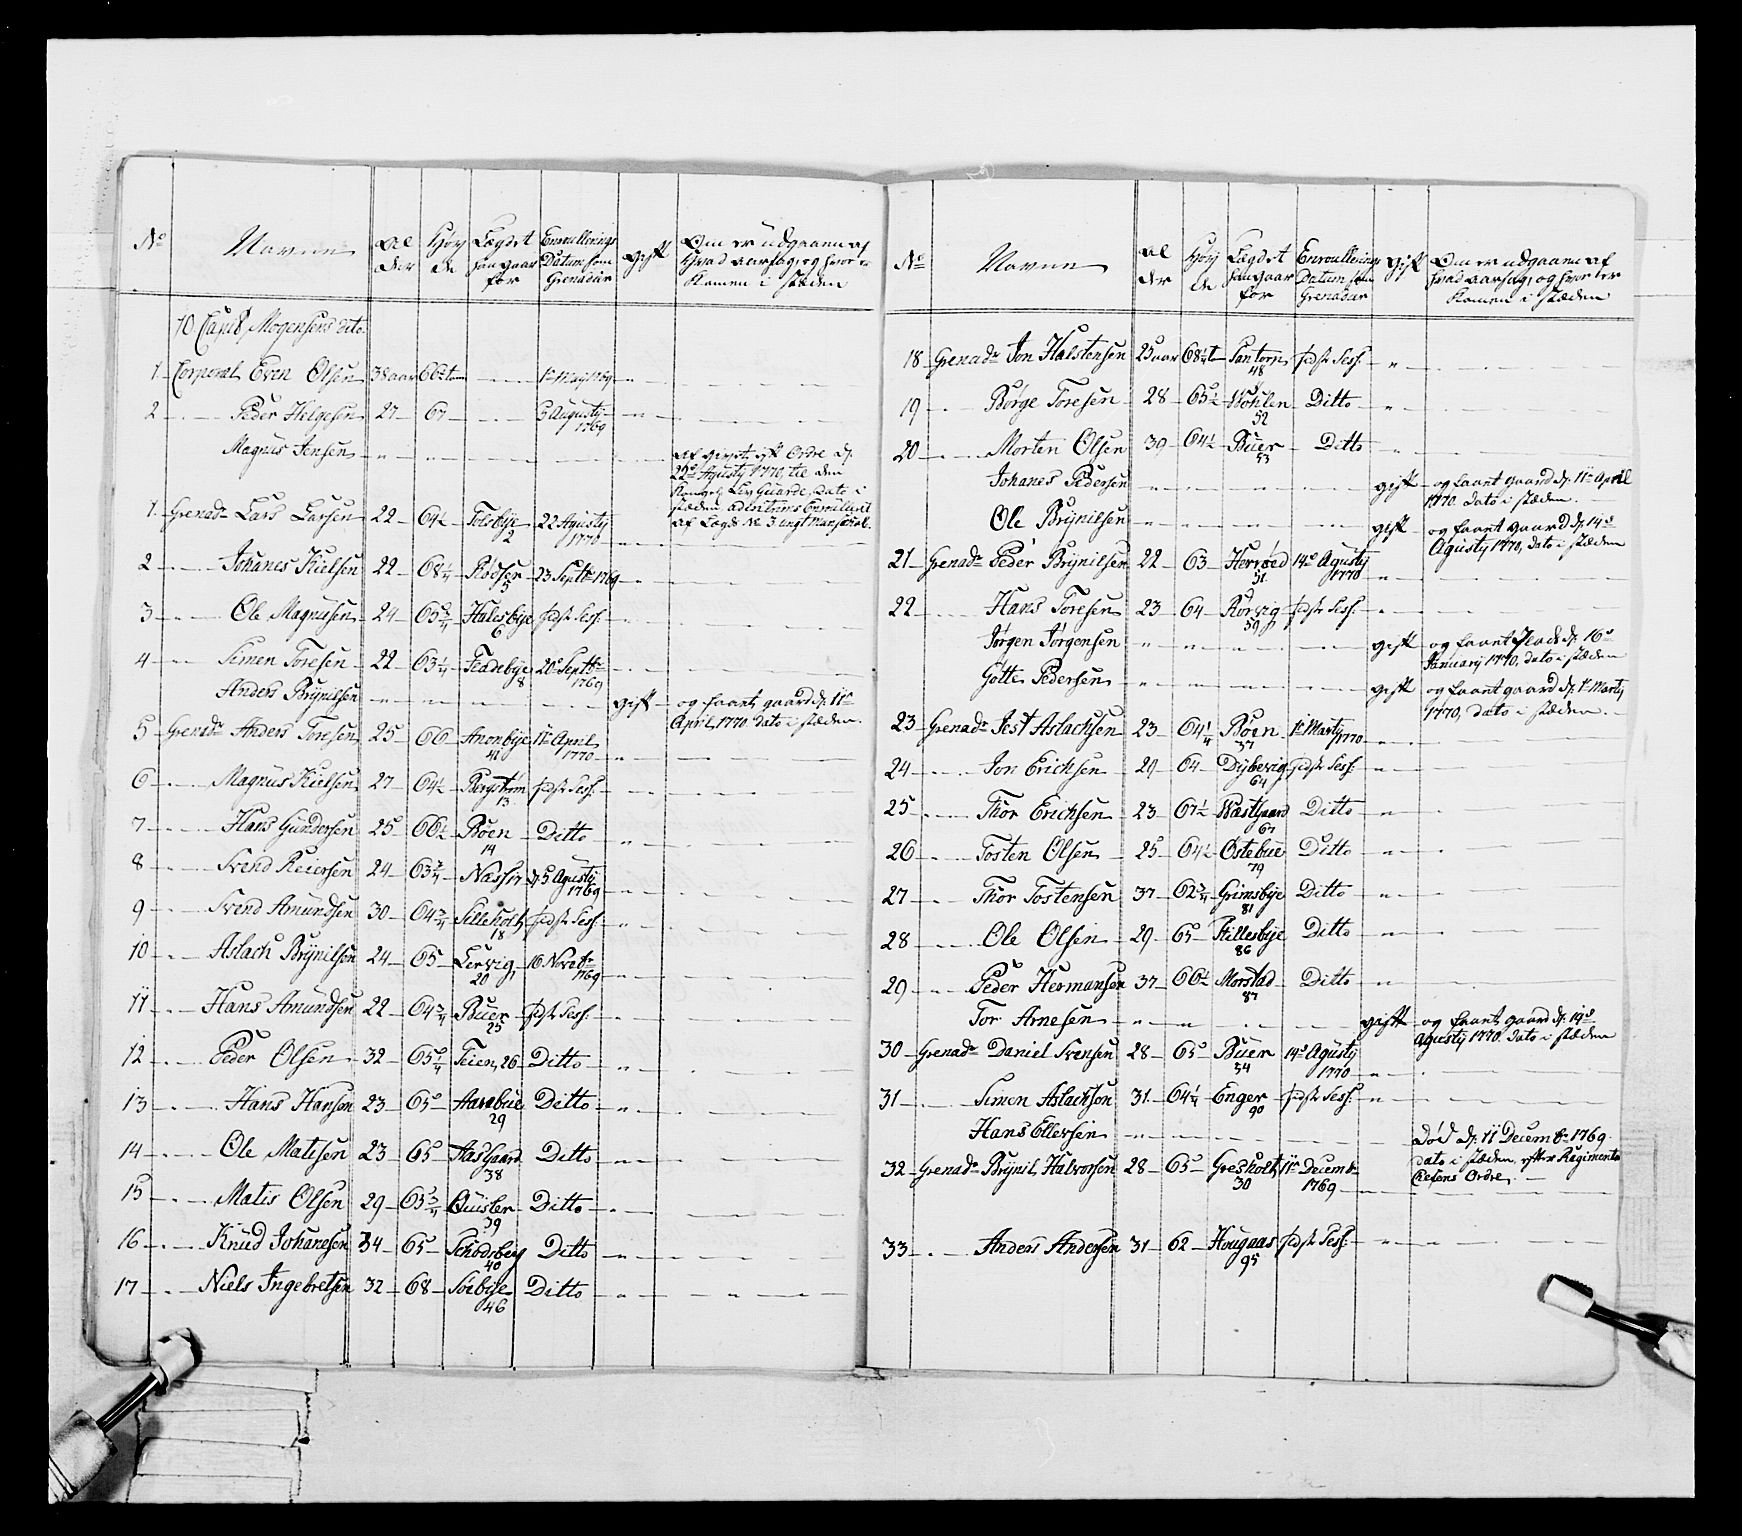 No Navne Al der Høy de Lægdet han gaar for Enroullerings Datum som Grenadier gift Om er udgaaen af hvad aarsag, og hvor er Kommen i stæden
10. Capt Mogensens dito
1 Corporal Even Olsen 38 aar 66 1st May 1769
2 Peder Helgesen 27 67 6 Augusty 1769
Magnus Jensen
af givet eft Ordre dj
22de Agusty 1770, til den
Kongel: Liv Guarde, dato i
stæden
af Lægd N 3
1 Grenadr Lars Larsen 22 64½ Tolsbye 2 22 Agusty 1770
2 Johanes Kielsen 22 68¼ Rødser 5 23 Septbr 1769
3 Ole Magnusen 24 65¾ Halesbye 6 sidst Sess:
4 Simen Toresen 22 63¼ Feadebye 8 20 Septbr 1769
Anders Brynilsen gift og faaet gaard dj. 11te
April 1770 dato i stæden.
5 Grenadr Anders Toresen 25 66 Anonbye 41 11te April 1770
6 Magnus Kielsen 27 64½ Bergstrøm 13 sidst Sess:
7 Hans Gundersen 25 66½ Bøen 14 Ditto
8 Svend Reiersen 24 63¾ Næss 5 Agusty 1769
9 Svend Amundsen 30 64¾ Silleholt 18 sidst Sess:
10 Aslach Brynilsen 24 65 Lervig 20 16 Novebr 1769
11 Hans Amundsen 22 64¾ Buer 25 sidst Sess:
12 Peder Olsen 32 65¼ Teien 26 Ditto
13 Hans Hansen 23 65 Aarebue 29 Ditto
14 Ole Matisen 23 65 Aasgaard 38 Ditto
15 Matis Olsen 29 63¾ Quisler 39 Ditto
16 Knud Johanesen 34 65 Schodsberg 40 Ditto
17 Niels Ingebretsen 32 68 Søebye 46 Ditto
No Navne Al der Høy de Lægdet han gaar for Enroullerings Datum som Grenadar gift Om er udgaaen af hvad aarsag, og hvor er Kommen i stæden
18 Grenadr Jon Halstensen 25 aar 68½ t Santorp 48 sidst Sess:
19 Børge Toresen 28 65½ Wøhlen 52 Ditto
20 Morten Olsen 39 64½ Buer 53 Ditto
Johanes Pedersen gift og faaet gaard dj. 11te April
1770. dato i stæden
Ole Brynilsen gift og faaet gaard dj. 14de
Agusty 1770, dato i stæden
21 Grenadr Peder Brynilsen 22 63 Herrøed 51 14de Agusty 1770
22 Hans Toresen 23 64 Rørvig 59 sidst Sess:
Jørgen Jørgensen gift og faaet Plads dj. 16de
January 1770, dato i stæden
Gotte Pedersen gift og faaet gaard dj. 1te Marty
1770, dato i stæden
23 Grenadr Jest Aslachsen 23 64¼ Boen 57 1te Marty 1770
24 Jon Erichsen 29 64 Dybevig 64 sidst Sess:
25 Thor Erichsen 23 67½ Wæstgaard 67 Ditto
26 Tosten Olsen 25 64½ Østebue 79 Ditto
27 Thor Tostensen 37 62¾ Grimsbye 81 Ditto
28 Ole Olsen 29 65 Killesbye 86 Ditto
29 Peder Hermansen 37 66½ Morstad 87 Ditto
Tor Arnesen gift og faaet gaard dj. 19de
Agusty 1770. dato i stæden
30 Grenadr Daniel Svensen 28 65 Buer 54 14de Agusty 1770
31 Simen Aslachsen 31 64¼ Enger 90 sidst Sess:
Hans Ellevsen Død dj. 11 Decembr 1769
dato i stæden, efter Regiments
Chefens Ordre
32 Grenadr Brynil Halvorsen 28 65 Gresholt 30 11te Decembr 1769
33 Anders Andersen 31 62 Hougaas 95 sidst Sess: